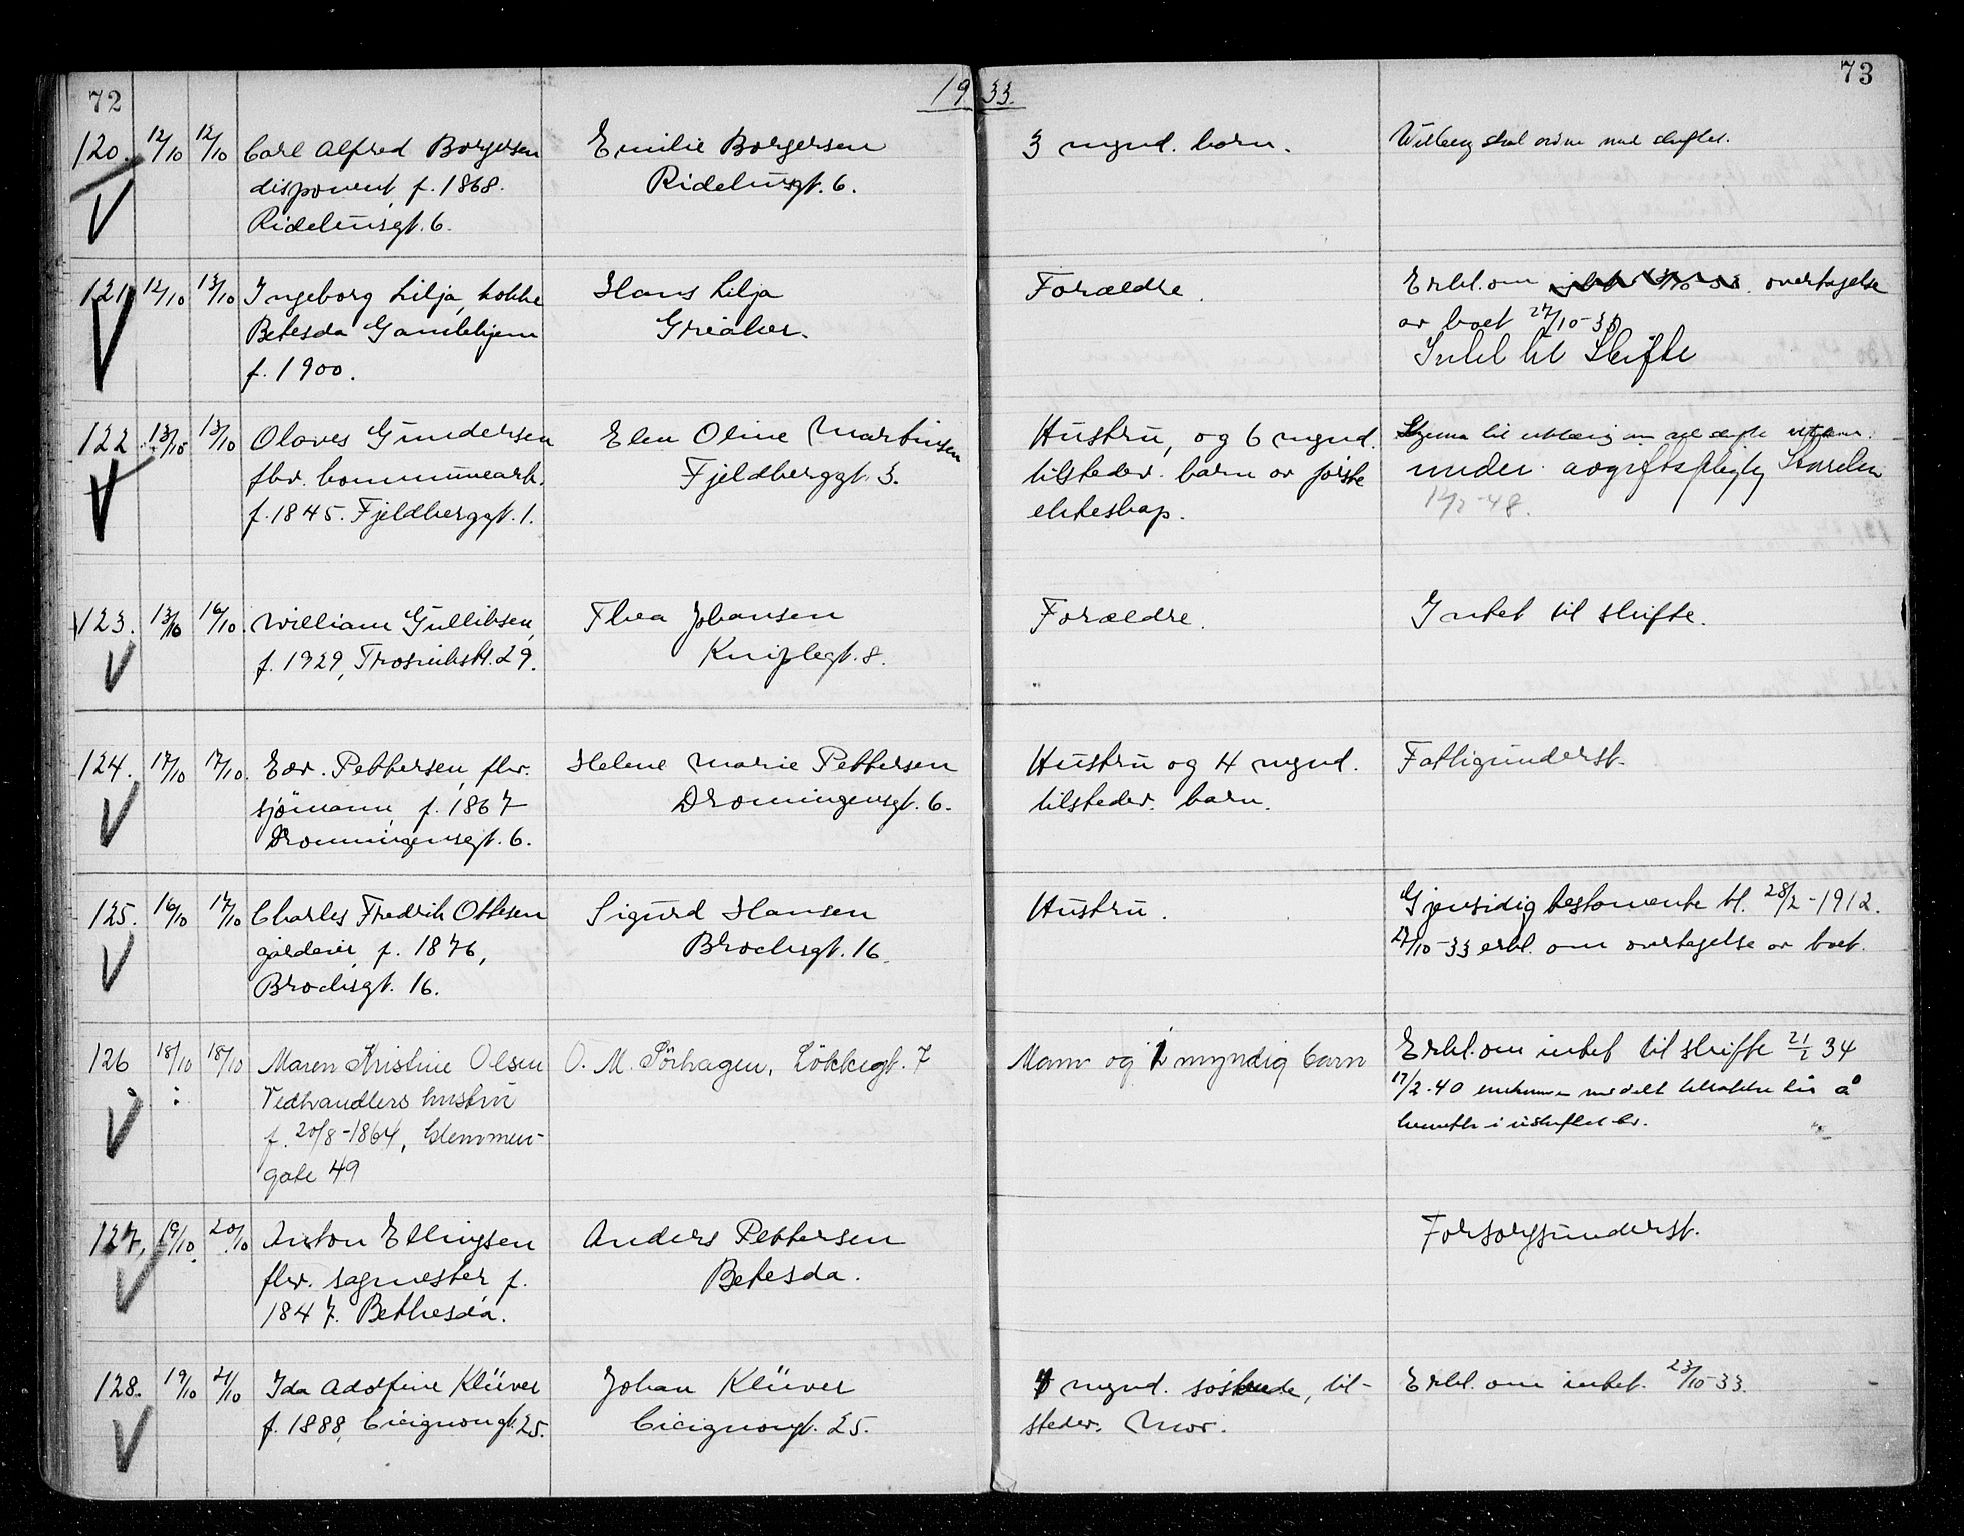 72
1933.
73
120. 12/10 12/10 Carl Alfred Borgersen
disponent, f. 1868.
Ridehusgt. 6.
Emilie Borgersen
Ridehusgt. 6.
3 mynd. barn.
Wilberg skal ordne med skiftet.
121 12/10 13/10 Ingeborg Lilja, kokke
Betesda Gamlehjem
f. 1900.
Hans Lilja
Greåker.
Forældre.
Erkl. om overtagelse
av boet 27/10-33
Intet til Skifte
122 13/10 13/10 Olaves Gundersen
fhv. kommunearb.
f. 1845. Fjeldberggt. 1.
Elen Oline Martinsen
Fjeldberggt. 3.
Hustru, og 6 mynd.
tilstedev. barn av første
ekteskap.
Skjema til erklæring om
under avgiftspligtig Størrelse
1/2-48.
123. 13/10 16/10. William Gullibsen,
f. 1929, Trosvikskl. 29.
Thea Johansen
Kniplegt. 8.
Forældre.
Intet til skifte.
124. 17/10 17/10. Edv. Pettersen, fhv.
sjömann, f. 1867
Dronningensgt. 6.
Helene Marie Pettersen
Dronningensgt. 6.
Hustru og 4 mynd.
tilstedev. barn.
Fattigunderst.
125. 16/10 17/10 Charles Fredrik Ottesen
gårdeier, f. 1876,
Brochsgt. 16.
Sigurd Hansen
Brochsgt. 16.
Hustru.
Gjensidig testamente tl. 28/2-1912.
27/10-33 erkl. om overtagelse av boet.
126 18/10 18/10 Maren Kristine Olsen
Vedhandlers hustru
f. 20/8-1864, Glemmen-
gate 49
O. M. Pörhagen, Lökkegt. 7
Mann og 1 myndig barn
Erkl. om intet til skifte 21/2 34
17/2-40 enkemann meddelt tillatelse til å
hensitte i uskiftet bo.
127. 19/10 20/10 Anton Ellingsen
fhv. sagmester f.
1847. Bethesda.
Anders Pettersen
Betesda.
Forsorgsunderst.
128. 19/10 21/10 Ida Adolfine Klüver
f. 1888, Cicignongt. 25.
Johan Klüver
Cicignongt. 25.
mynd. søskende, til-
stedev. Mor.
Erkl. om intet. 23/10-33.